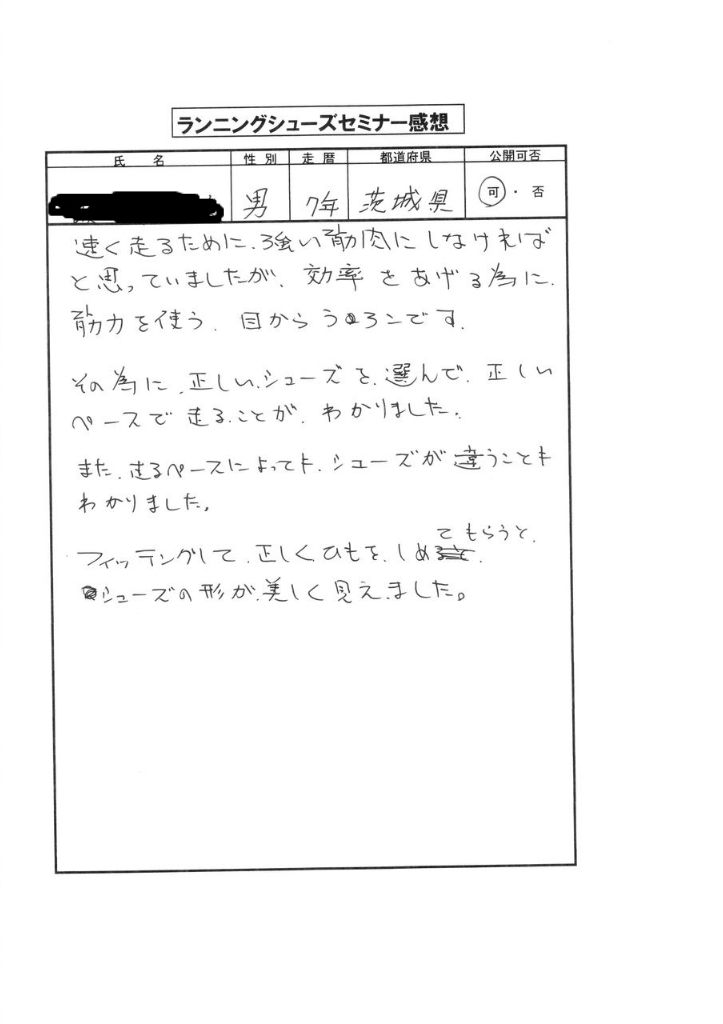 ランニングシューズセミナー感想
氏 名 性別 走暦 都道府県 公開可否
男 7年 茨城県 可・否
速く走るために、強い筋肉にしなければ
と思っていましたが、効率をあげる為に、
筋力を使う、目からうろこです。
その為に、正しい、シューズを、選んで、正しい
ペースで走ることが、わかりました。
また、走るペースによっても、シューズが違うことも
わかりました。
てもらうと、
フィッテングして、正しくひもを、しめ
シューズの形が、美しく見えました。